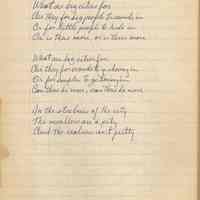 What are big cities for
Are they for big people to wander in
Or for little people to hide in
Or is there more, or is there more

What are big cities for
Are they for crowds to go slowly in
Or for singles to go lonely in
Can there be more, can there be more

In the stardust of the city
The
And the realism isn't pretty